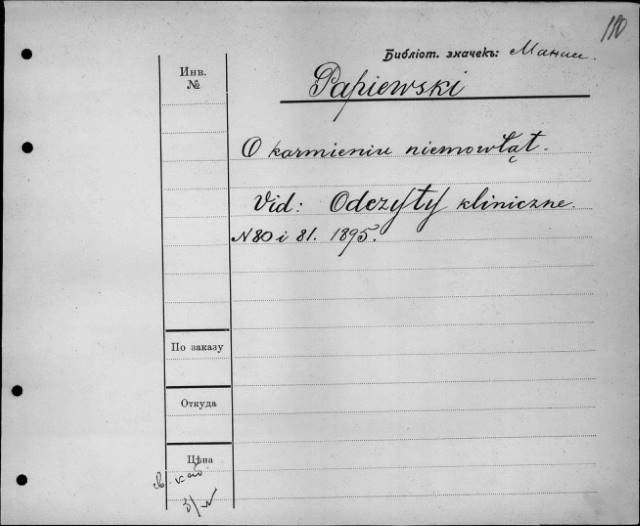 110
Библіот. значекъ:
Инв. №
Papiewski
O karmieniu niemowląt.
Vid: Odczyty kliniczne.
N 80 i 81. 1895.
По заказу
Откуда
Цѣна